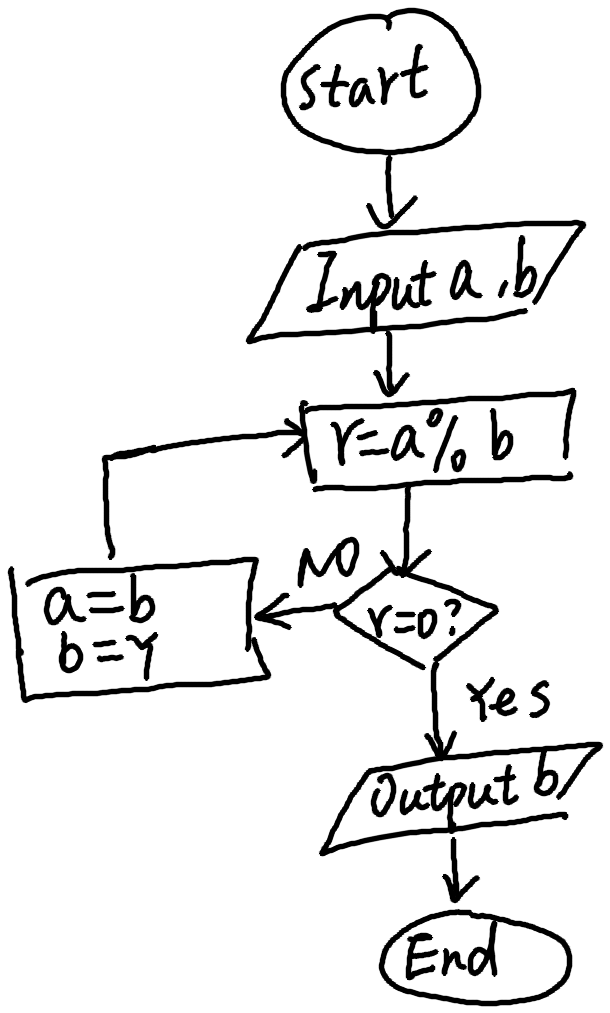 Start
Input a, b
r=a% b
NO
r=0?
a=b
b=r
Yes
Output b
End